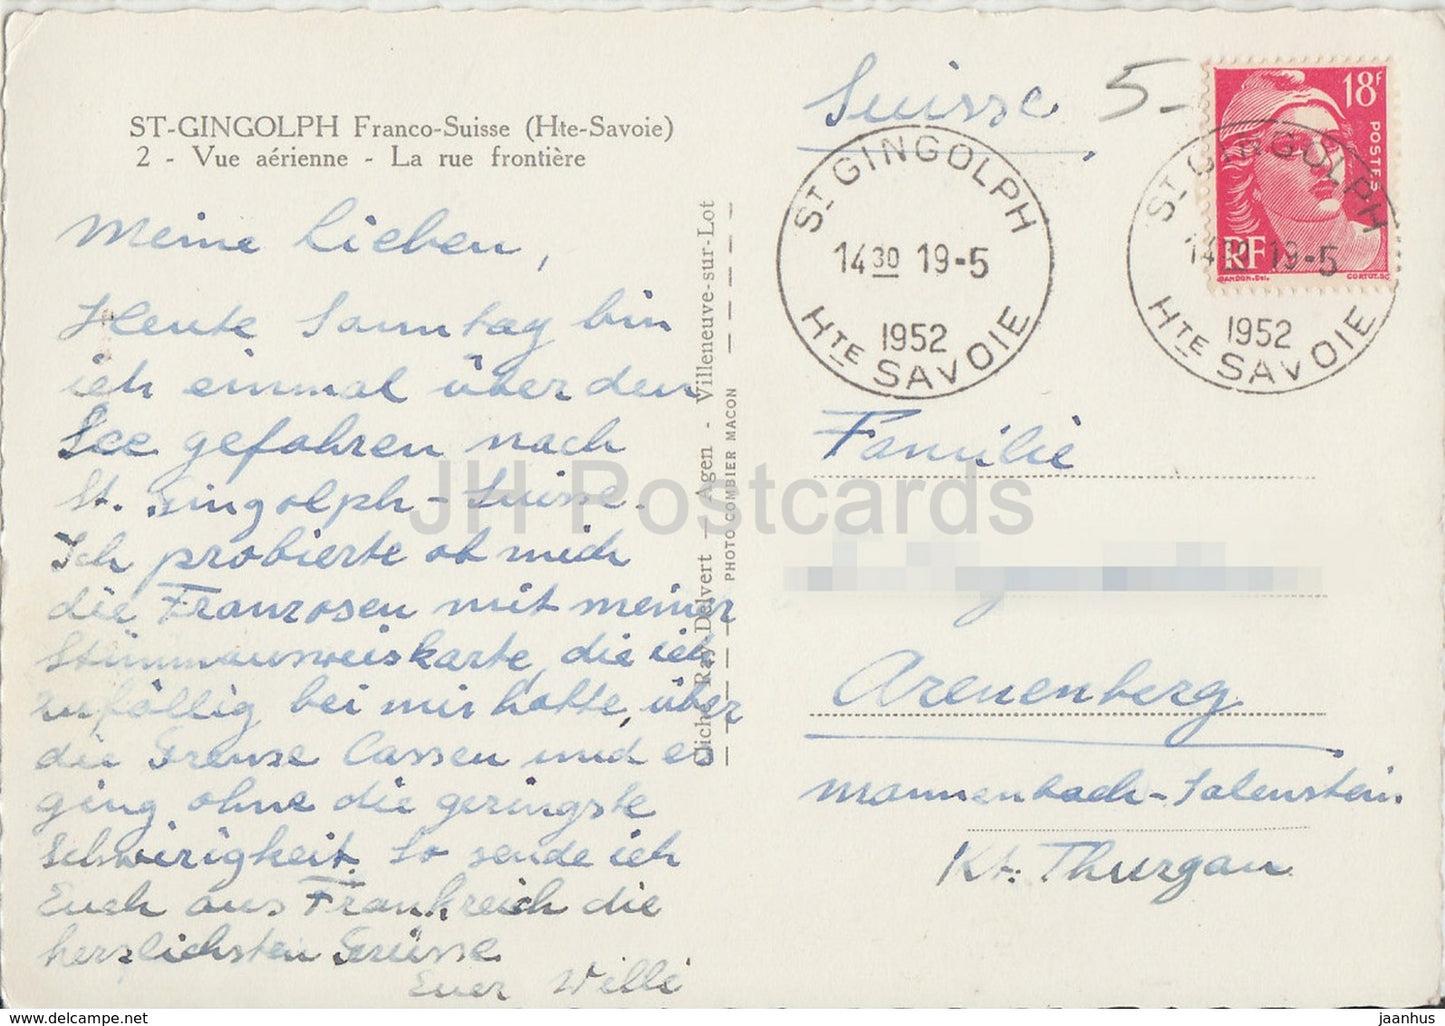 ST-GINGOLPH Franco-Suisse (Hte-Savoie)
2 - Vue aérienne - La rue frontière
Meine Lieben,
Heute Sonntag bin
ich einmal über den
See gefahren nach
St. Gingolph - Suisse.
Ich probierte ob mich
die Franzosen mit meiner
Stimmausweiskarte, die ich
zufällig bei mir hatte, über
die Grenze lassen und es
ging ohne die geringste
Schwirigkeit. So sende ich
Euch aus Frankreich die
herzlichsten Grüsse
Euer Willi
Cliché Ray Delvert - Agen - Villeneuve-sur-Lot
PHOTO COMBIER MACON
Suisse 5-
ST GINGOLPH
14 30 19-5
1952
HTE SAVOIE
18F
POSTES
RF
GANDON.Del.
CORTOT.SC
ST GINGOLPH
14 30 19-5
1952
HTE SAVOIE
Familie
Arenenberg
Mannenbach-Salenstein.
Kt. Thurgau
JH Postcards
delcampe.net
jaanhus